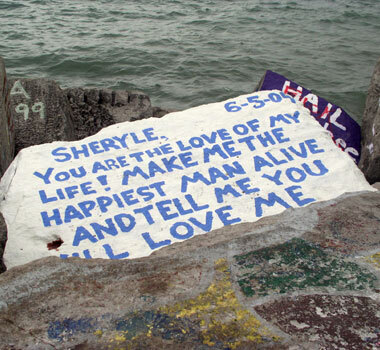 A
99
6-5-0
SHERYLE,
YOU ARE THE LOVE OF MY
LIFE! MAKE ME THE
HAPPIEST MAN ALIVE
AND TELL ME YOU
LOVE ME
HAIL